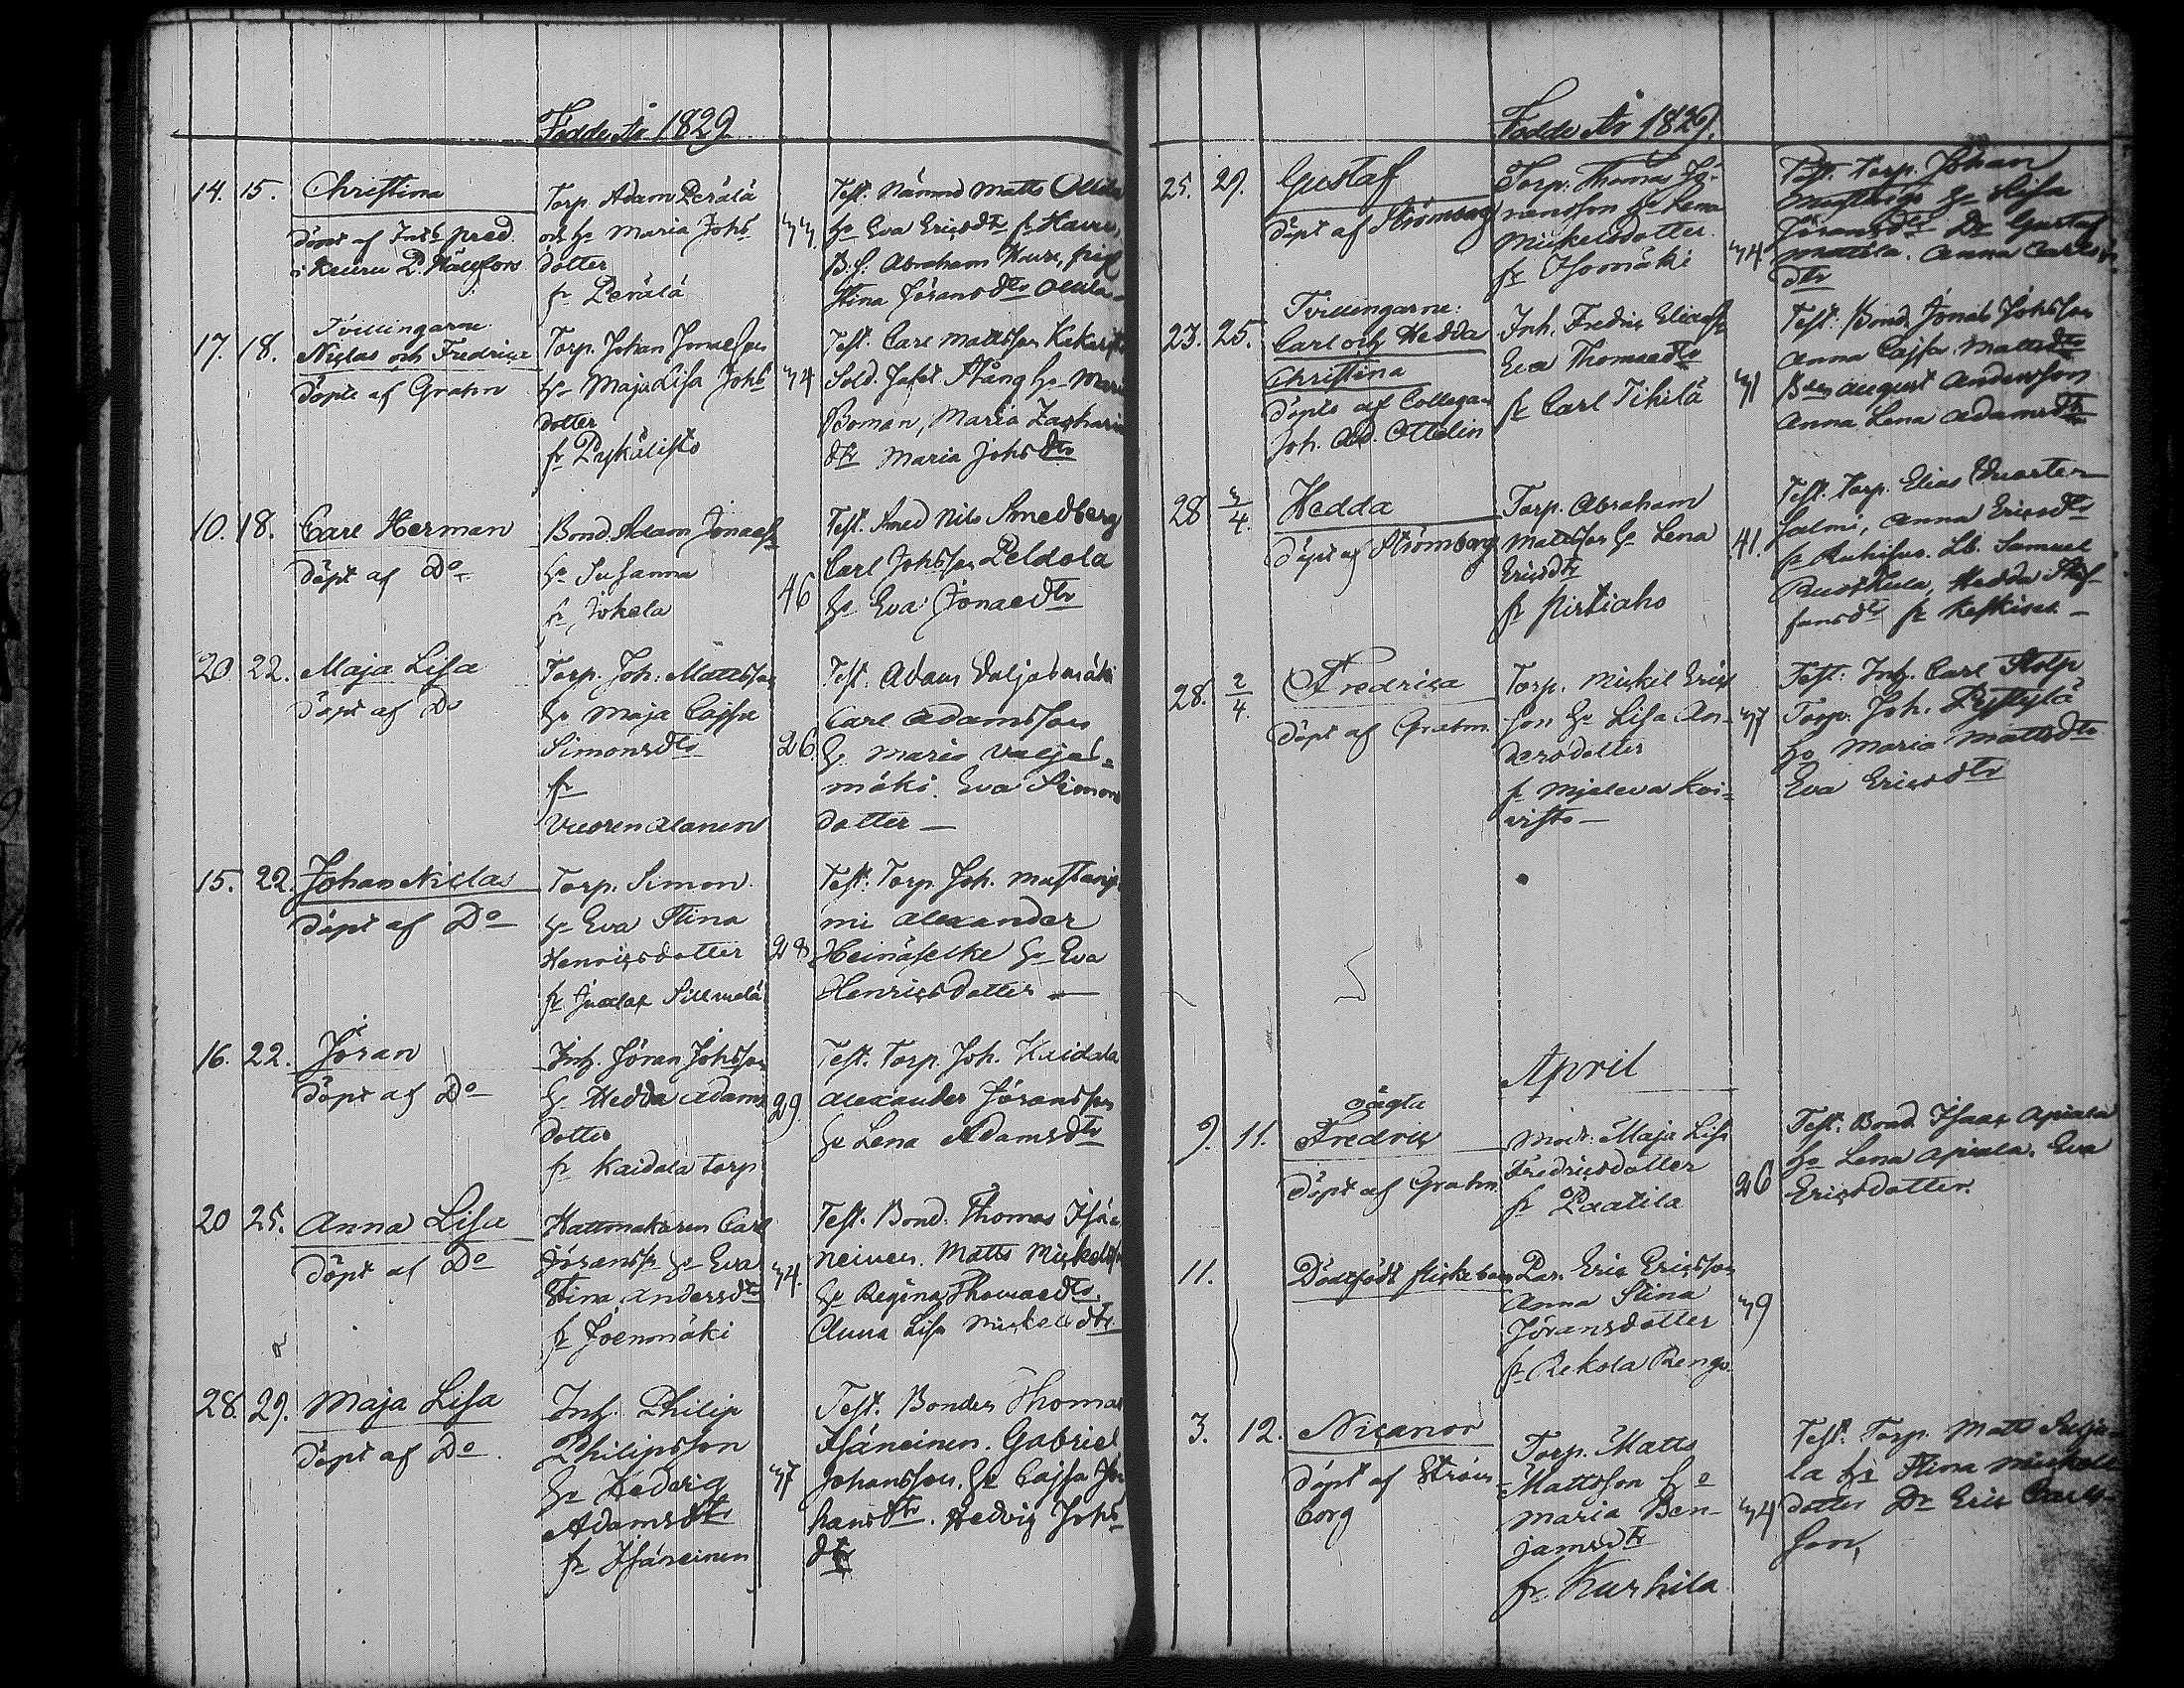 Födde År 1829
14. 15. Christina
döpt af Inhs pred.
i Keuru P. Hällfors
Torp. Adam Perälä
och H. Maria Johs
dotter
fr Perälä
33
Test. Nämnd Matts Ollila
H. Eva Ericsdtr fr Hauru,
B. S. Abraham Kure, pig
Stina Jöransdtr Ollila
17. 18. Tvillingarne
Niclas och Fredrica
döpte af Grahn
Torp. Johan Jonaesson
H. Maja Lisa Johs
dotter
fr Pyykölistö
34
Test. Carl Mattsson
Sold. Jafet Stång H. Maria
Boman, Maria Zacharia
dtr Maria Johsdtr
10. 18. Carl Herman
döpt af Do
Bond. Adam Jonaess
H. Susanna
fr Jokela
46
Test. Smed Nils Smedberg
Carl Johsson Peldola
H. Eva Jonaedtr
20 22. Maja Lisa
döpt af Do
Torp. Joh. Mattsson
H. Maja Cajsa
Simonsdtr
fr
Vuorenalanen
26
Test. Adam Valjasmäki
Carl Adamsson
H. Maria Valjas-
mäki. Eva Simons
dotter —
15. 22. Johan Niclas
döpt af Do
Torp. Simon
H. Eva Stina
Henricsdotter
fr
28
Test. Torp Joh. Mustanje
mi Alexander
Heinäselke H. Eva
Henricsdotter —
16. 22. Jöran
döpt af Do
Inh. Jöran Johsson
H. Hedda Adams
dotter
fr Kaidala torp
29
Test. Torp. Joh. Kaidala
Alexander Jöransson
H. Lena Adamsdtr
20 25. Anna Lisa
döpt af Do
Hattmakaren Carl
Jöranss. H. Eva
Stina Andersdtr
fr Joenmäki
34.
Test. Bond. Thomas Isä
neinen. Matts Mickelss
H. Regina Thomaedtr.
Anna Lisa Mickelsdtr
28. 29. Maja Lisa
döpt af Do.
Inh. Philip
Philipsson
H. Hedvig
Adamsdtr
fr Isäneinen
37
Test. Bonden Thomas
Isäneinen. Gabriel
Johansson. H. Cajsa Jo
hansdtr. Hedvig Johs
dtr
Födde År 1829.
25. 29. Gustaf
döpt af Strömborg
Torp. Thomas Jö-
ransson H. Lena
Mickelsdotter.
fr Isomäki
34
Test. Torp. Johan
H. Lisa
Jöransdtr Dr Gustaf
Mattila. Anna Carls
dtr
23. 25. Tvillingarne:
Carl och Hedda
Christina
döpte af Collegan
Joh. Ad. Ottelin
Inh. Fredric Eliaesson
Eva Thomaedtr
fr Carl Tikilä
31
Test. Bond. Jonas Johsson
Anna Cajsa Mattsdtr
Bden August Andersson
Anna Lena Adamsdtr
28 3/4. Hedda
döpt af Strömborg
Torp. Abraham
Mattsson H. Lena
Ericsdtr
fr Pirtiaho
41.
Test. Torp. Elias
Salmi, Anna Ericsdtr
fr Lb. Samuel
Hedda Stef-
fansdtr fr Keskinen —
28. 2/4. Fredrica
döpt af Grahn
Torp. Mickel Erics
son H. Lisa An-
dersdotter
fr Koi-
visto —
37
Test: Inh. Carl Stolp
Torp. Joh.
H. Maria Mattsdtr
Eva Ericsdtr
April
9. 11. oägta
Fredric
döpt af Grahn
Mod: Maja Lisa
Fredricsdotter
fr Paatila
26
Test. Bond. Isaac Apiala
H. Lena Apiala. Eva
Ericsdotter.
11. Dödfödt flickebarn
Par. Eric Ericsson
Anna Stina
Jöransdotter
fr Rekola Rengo
39
3. 12. Nicanor
döpt af Ström
borg
Torp. Matts
Mattsson H.
Maria Ben-
jamsdtr
fr Kurkila
34
Test. Torp. Matts
la H. Stina Mickels
dotter Dr Eric Carls-
son,